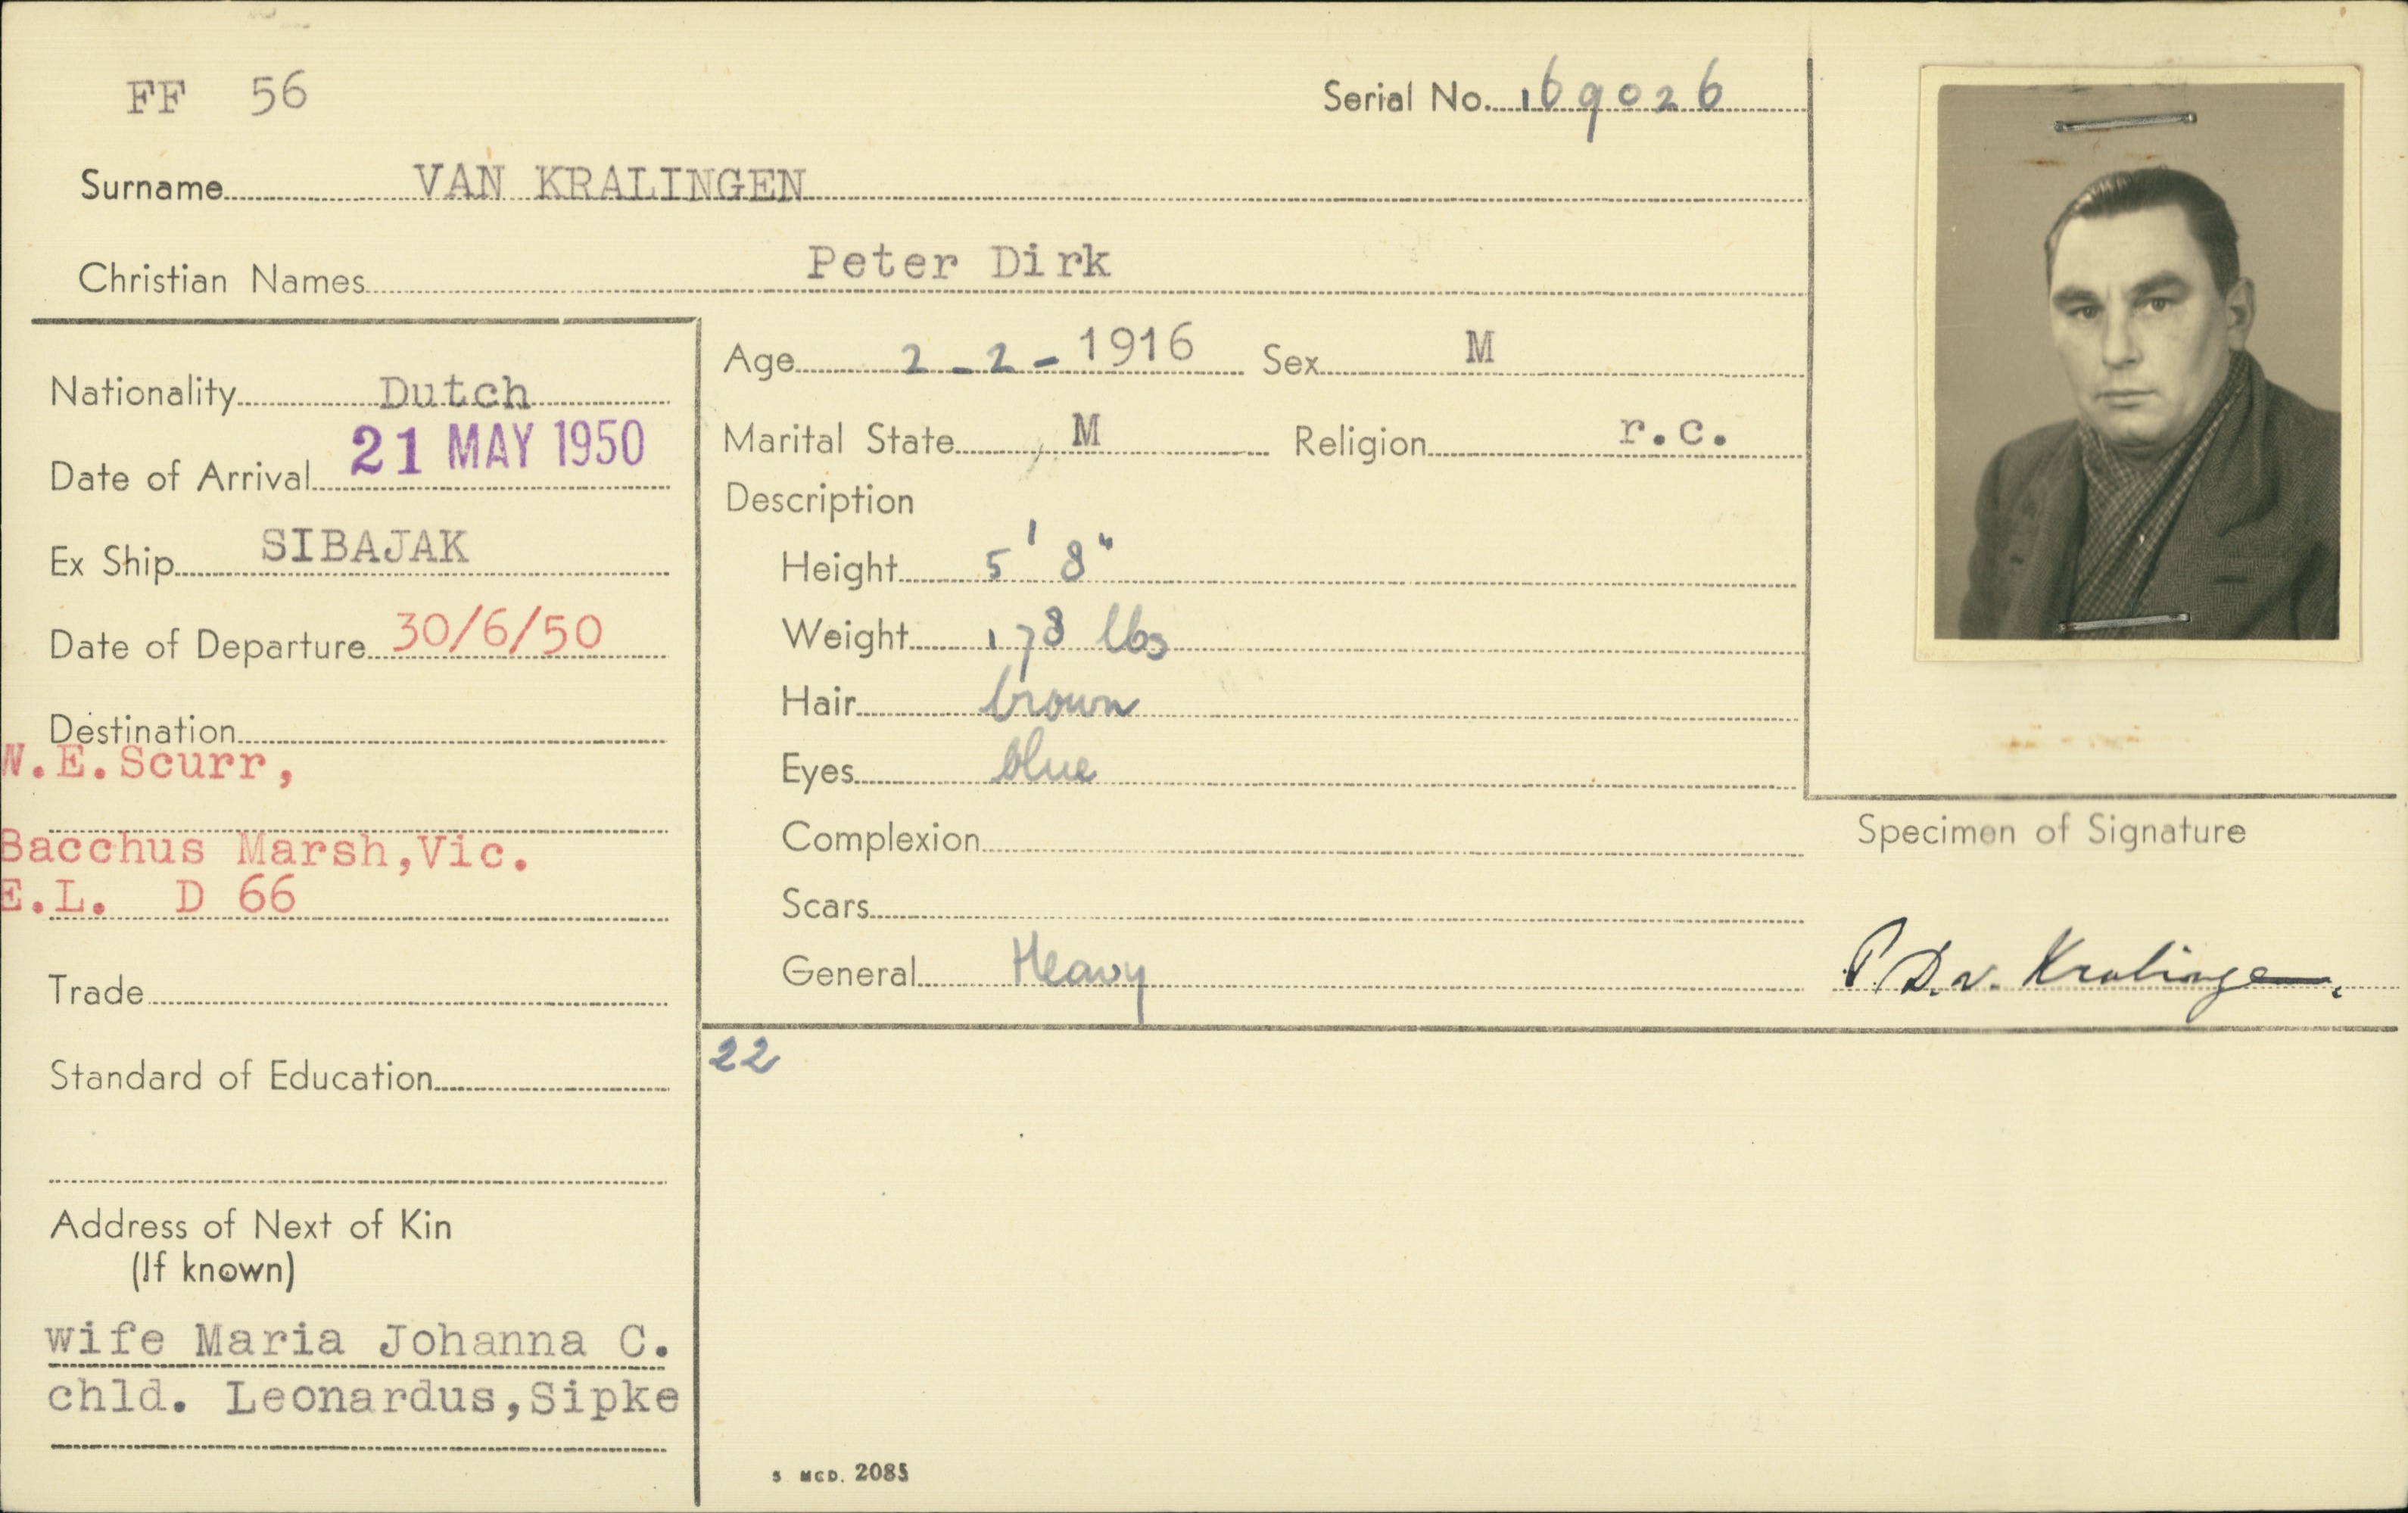 FF 56
Serial No. 169026
Surname VAN KRALINGEN
Christian Names Peter Dirk
Nationality Dutch
Date of Arrival 21 MAY 1950
Ex Ship SIBAJAK
Date of Departure 30/6/50
Destination
W.E.Scurr,
Bacchus Marsh,Vic.
E.L. D 66
Trade
Standard of Education
Address of Next of Kin
(If known)
wife Maria Johanna C.
chld. Leonardus,Sipke
Age 2-2-1916 Sex M
Marital State M Religion r.c.
Description
Height 5' 8"
Weight 178 lbs
Hair brown
Eyes blue
Complexion
Scars
General Heavy
Specimen of Signature
P. D. v. Kralingen.
22
5 MCD. 2085